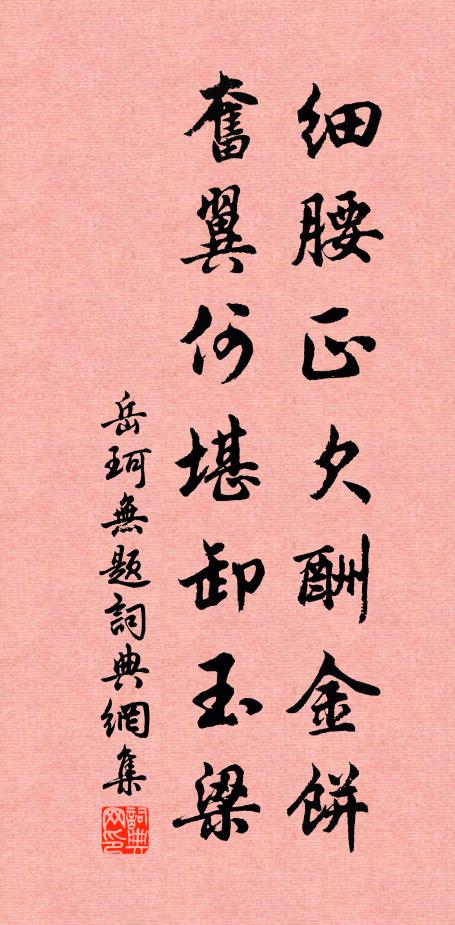 細腰正欠酬金餅
奮翼何堪卸玉梁
岳珂無題詞典網集
詞典網印